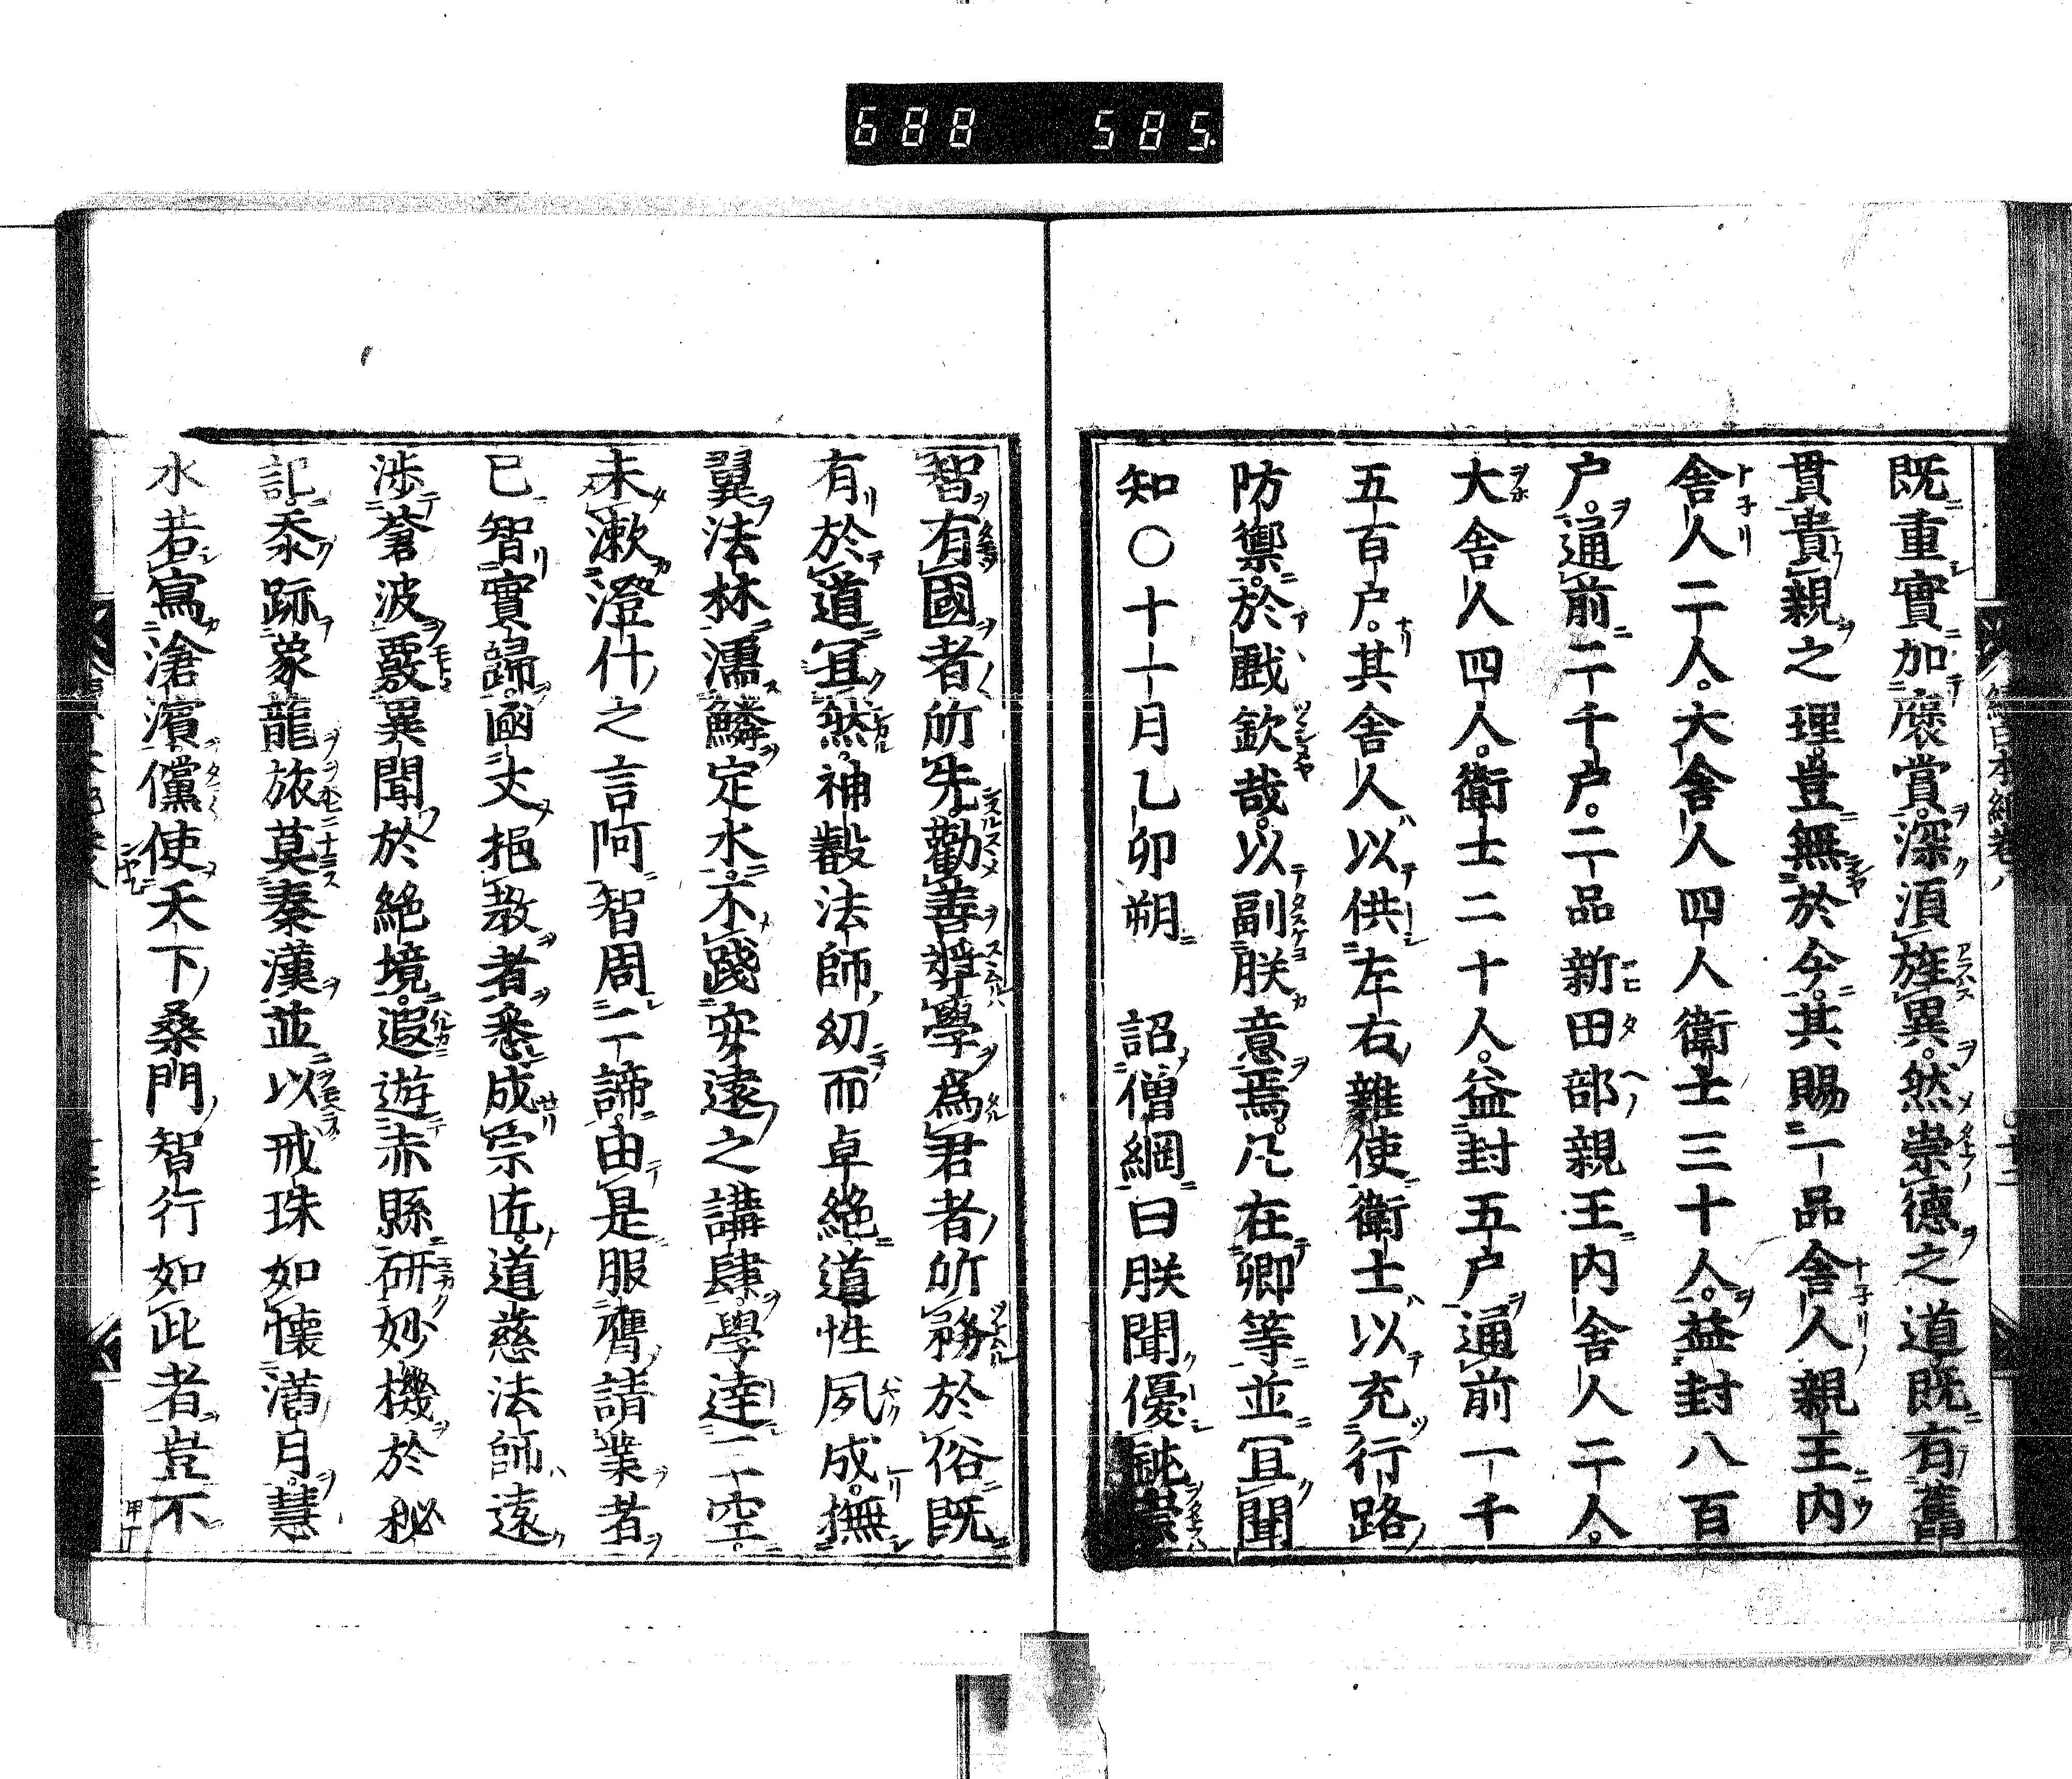 688 585
既重實加褒賞深須旌異然崇德之道既有舊
貫貴親之理豈無於今其賜一品舎人親王内
舎人二人大舎人四人衛士三十人益封八百
户通前二千户二品新田部親王内舎人二人
大舎人四人衛士二十人益封五户通前一千
五百户其舎人以供左右雜使衛士以充行路
防禦於戲欽哉以副朕意焉凡在卿等並冝聞
知〇十一月乙卯朔 詔僧綱曰朕聞優能崇
智有國者所先勸善奬學為君者所務於俗既
有於道冝然神叡法師幼而卓絶道性夙成撫
翼法林濡鱗定水不踐安遠之講肆學達三空
未漱澄什之言河智周二諦由是服膺請業者
已智實歸函丈挹教者悉成宗匠道慈法師遠
渉蒼波覈異聞於絶境遐遊赤縣研妙機於秘
記叅跡象龍振英秦漢並以戒珠如懐滿月慧
水若寫滄濱儻使天下桑門智行如此者豈不